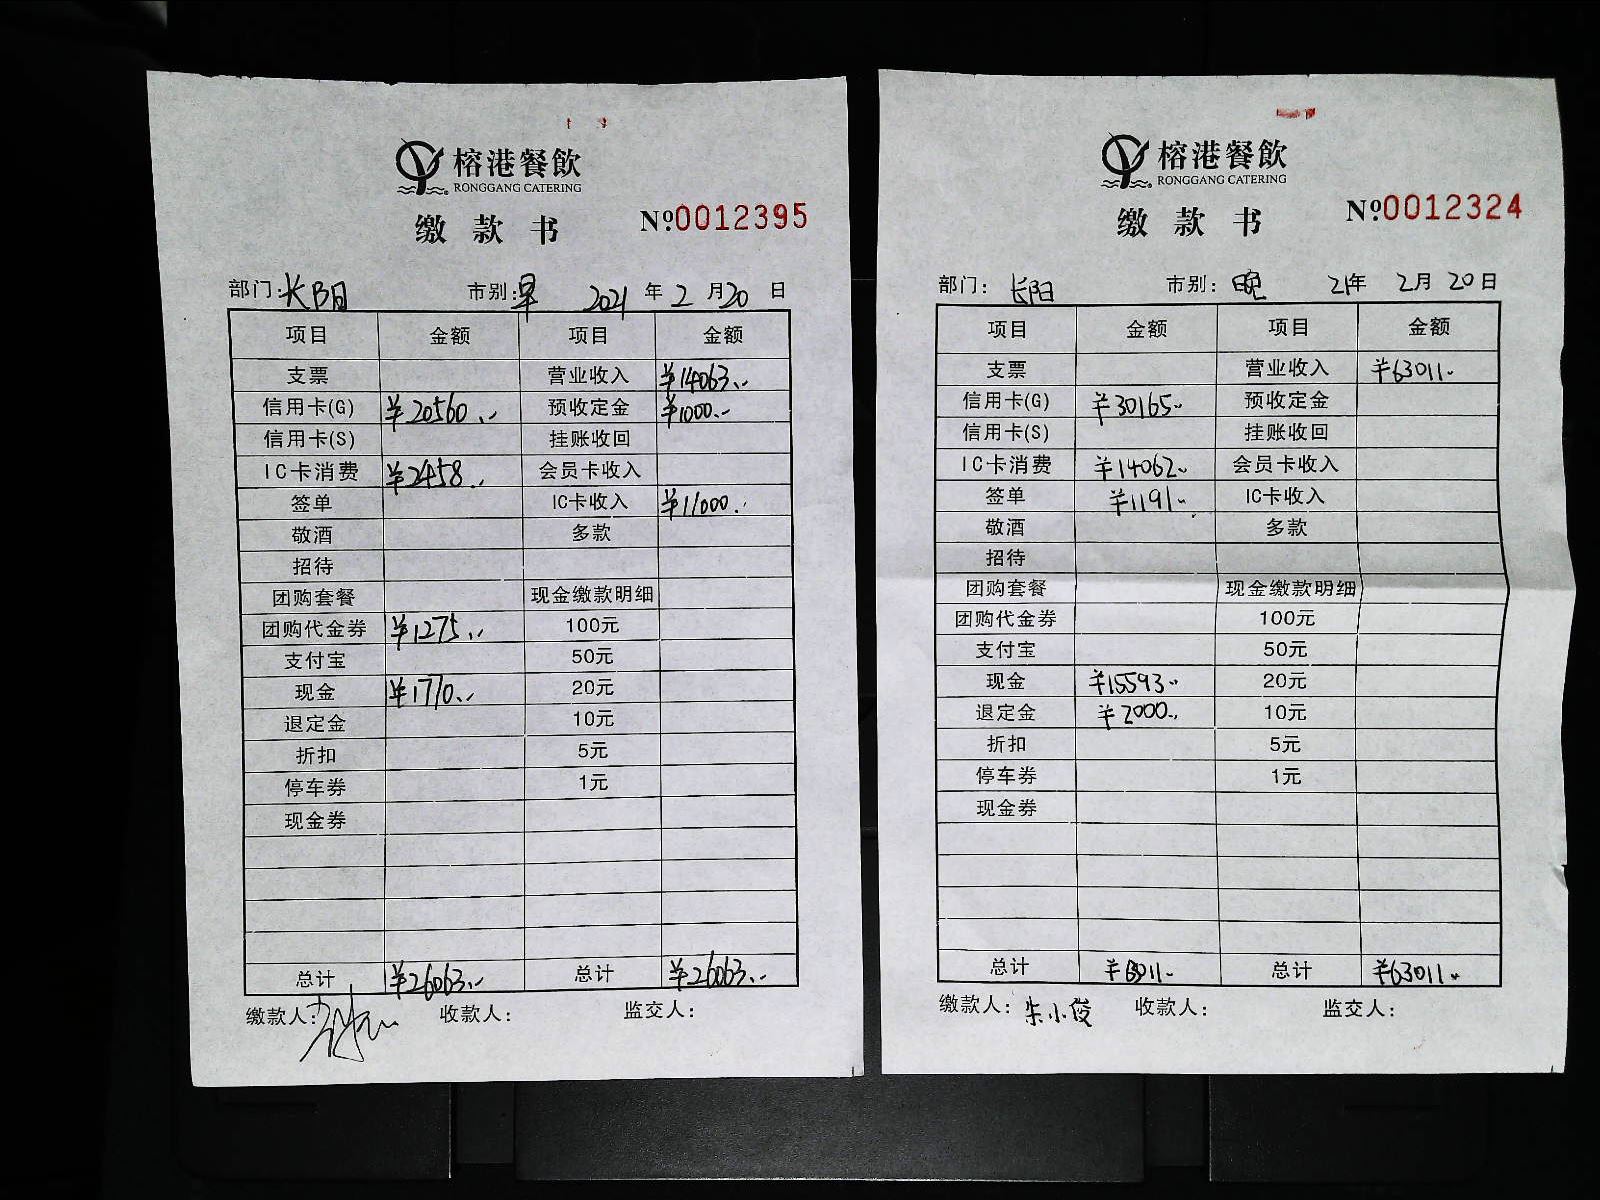 榕港餐飲
RONGGANG CATERING
缴款书 №0012395
部门:长阳 市别:早 2021年2月20日
项目 金额 项目 金额
支票 营业收入 ¥14063.-
信用卡(G) ¥20560.- 预收定金 ¥1000.-
信用卡(S) 挂账收回
IC卡消费 ¥2458.- 会员卡收入
签单 IC卡收入 ¥11000.-
敬酒 多款
招待
团购套餐 现金缴款明细
团购代金券 ¥1275.- 100元
支付宝 50元
现金 ¥1770.- 20元
退定金 10元
折扣 5元
停车券 1元
现金券
总计 ¥26063.- 总计 ¥26063.-
缴款人: 收款人: 监交人:
榕港餐飲
RONGGANG CATERING
缴款书 №0012324
部门:长阳 市别:晚 21年2月20日
项目 金额 项目 金额
支票 营业收入 ¥63011.-
信用卡(G) ¥30165.- 预收定金
信用卡(S) 挂账收回
IC卡消费 ¥14062.- 会员卡收入
签单 ¥1191.- IC卡收入
敬酒 多款
招待
团购套餐 现金缴款明细
团购代金券 100元
支付宝 50元
现金 ¥15593.- 20元
退定金 ¥2000.- 10元
折扣 5元
停车券 1元
现金券
总计 ¥63011.- 总计 ¥63011.-
缴款人:朱小俊 收款人: 监交人: